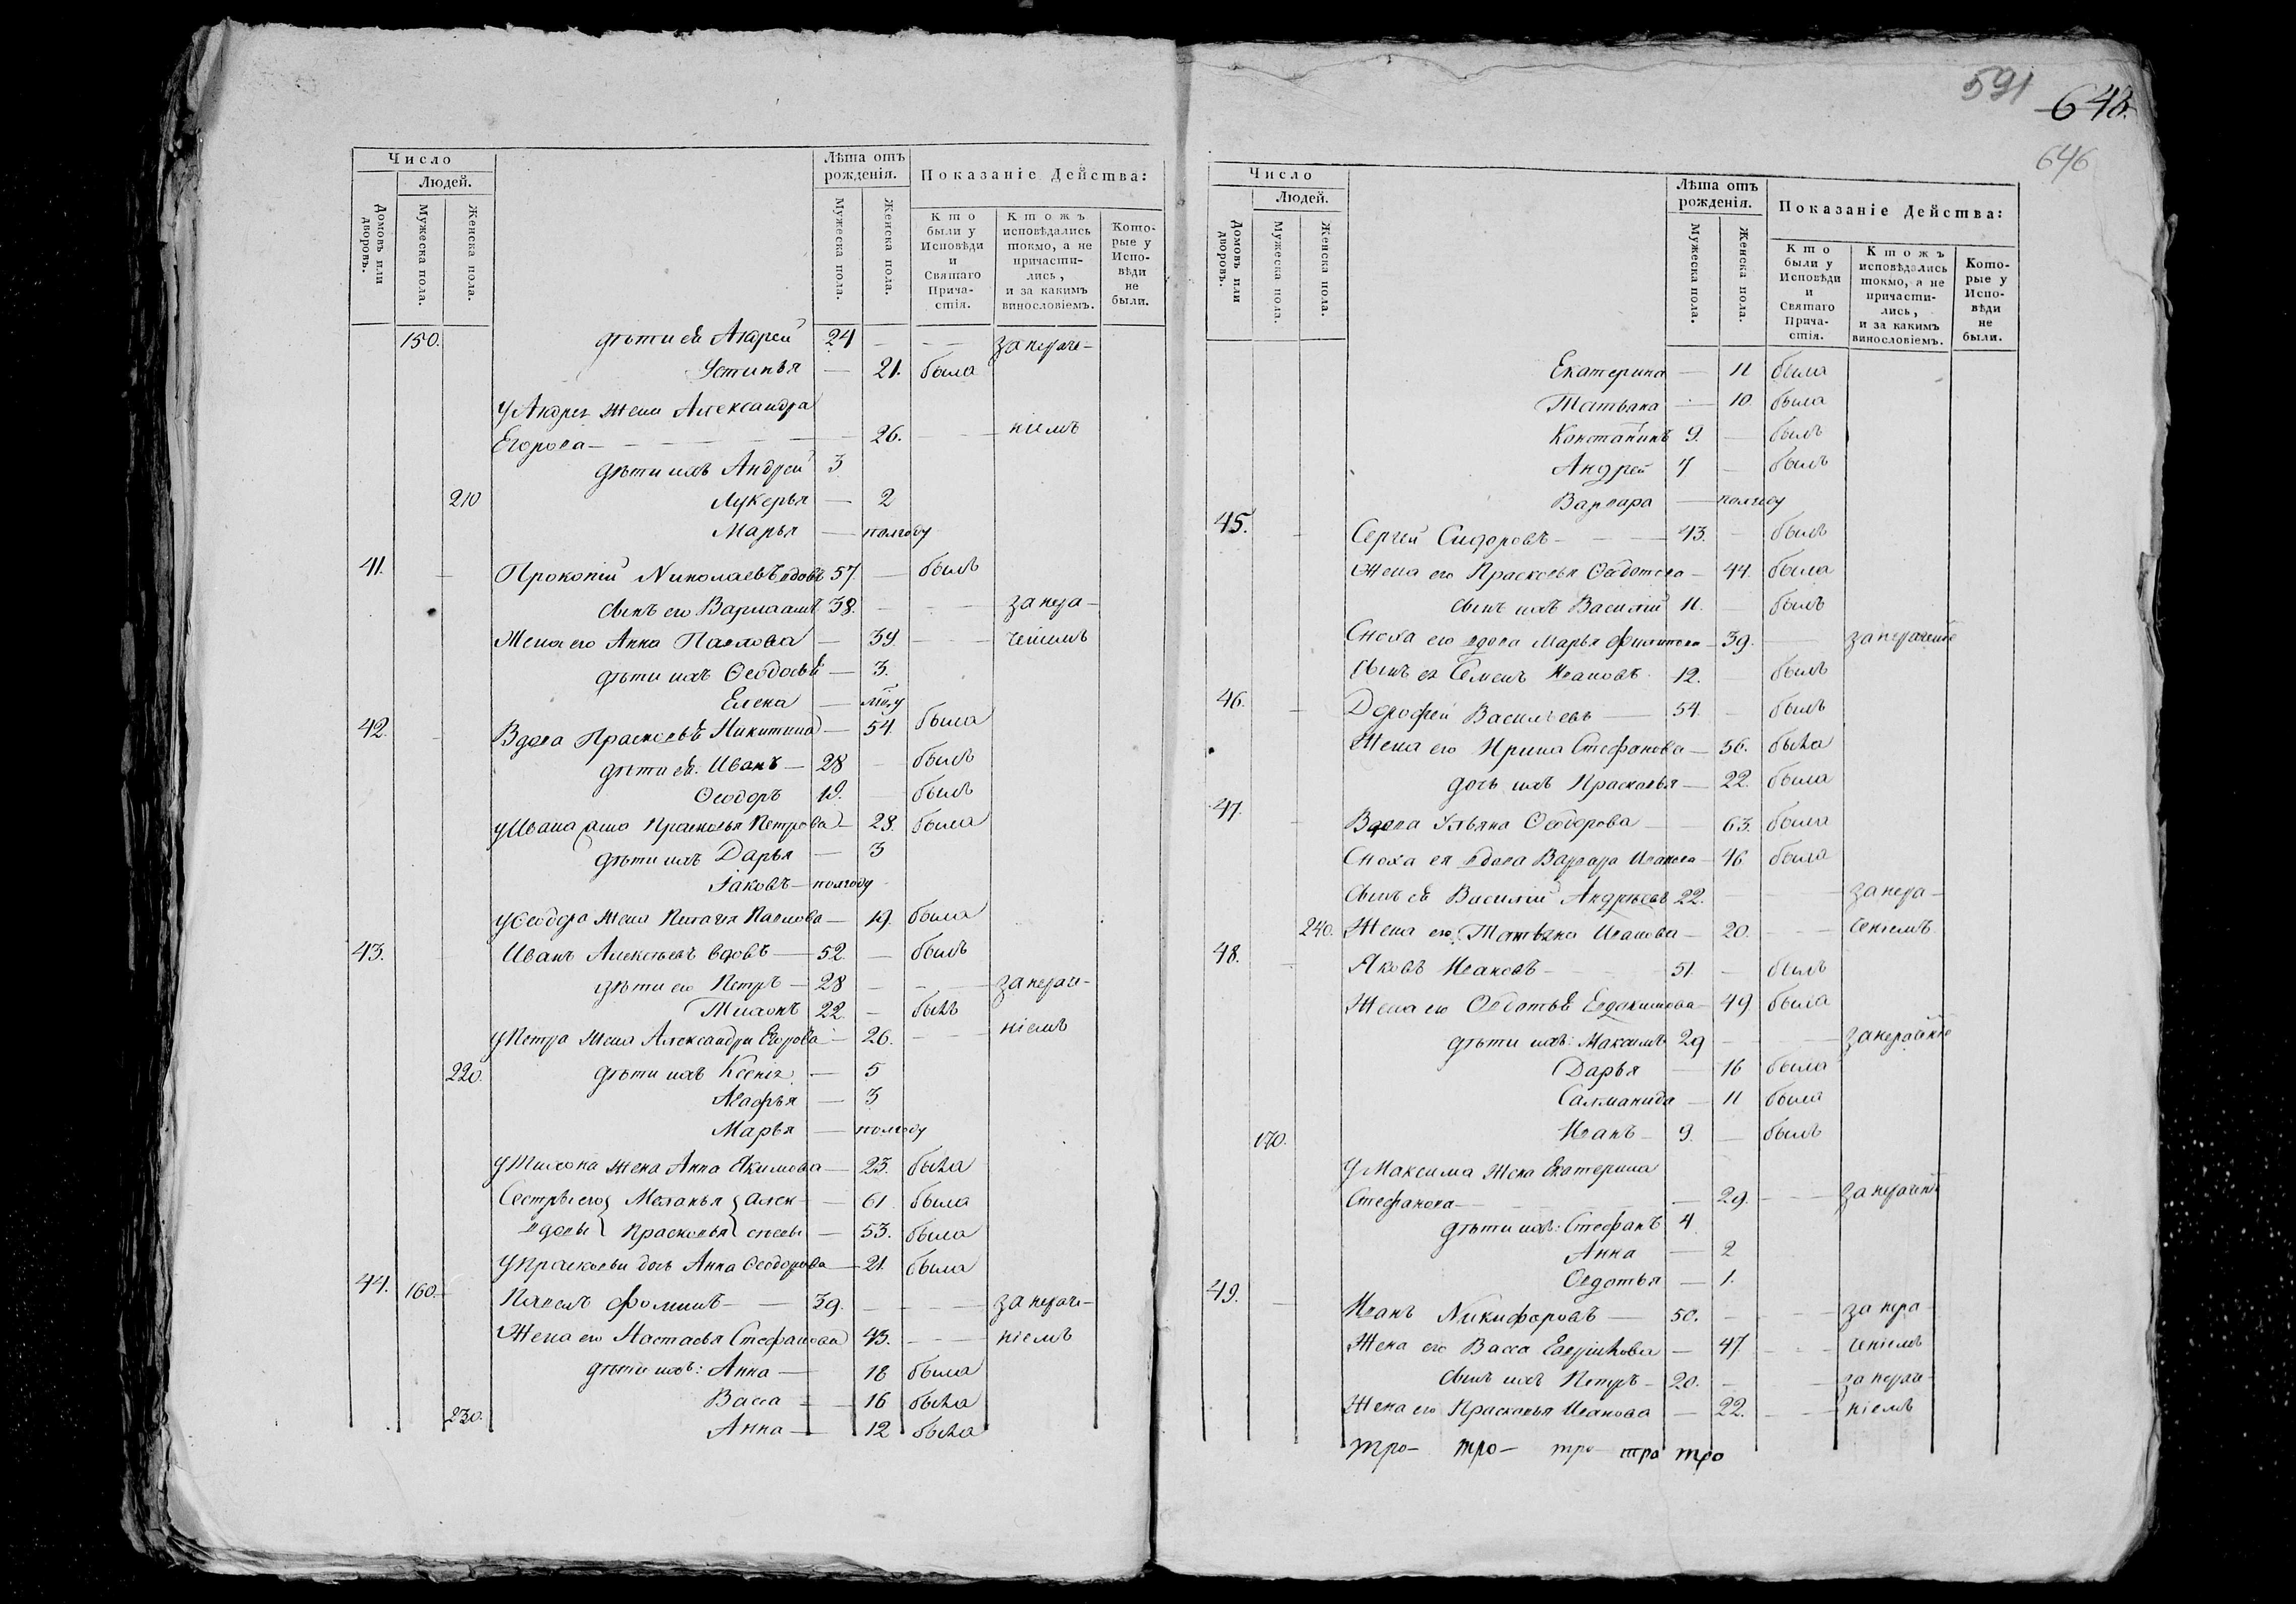 591
648.
646
Число
Людей.
Домовъ или дворовъ.
Мужеска пола.
Женска пола.
Лѣта отъ рожденія.
Мужеска пола.
Женска пола.
Показаніе Действа:
Кто были у Исповѣди и Святаго Прича-стія.
Ктожъ исповѣдались токмо, а не причасти-лись, и за какимъ винословіемъ.
Кото-рые у Испо-вѣди не были.
150. дѣти ея Андрей 24 — — занераче-
Устинья — 21. была
У Андрея жена Александра
Егорова — 26. — ніемъ
дѣти ихъ Андрей 3
210 Лукерья — 2
Марья — полгоду
41. — Прокопій Николаевъ вдовъ 57. — былъ
сынъ его Варлаамъ 38. — — занера-
Жена его Анна Павлова — 39. — ченіемъ
дѣти ихъ Ѳеодосья — 3.
Елена —
42. — Вдова Прасковья Никитина — 54. была
дѣти ея: Иванъ — 28 — былъ
Ѳеодоръ 19. — былъ
У Ивана жена Прасковья Петрова — 28. была
дѣти ихъ Дарья — 3
Іаковъ — полгоду
У Ѳеодора жена Пелагея Павлова — 19. была
43. — Иванъ Алексѣевъ вдовъ — 52. — былъ
дѣти его Петръ — 28 — — занераче-
Тихонъ 22. — былъ
У Петра жена Александра Егорова — 26. — ніемъ
220. дѣти ихъ Ксенія — 5
Марфья — 3
Марья — полгоду
У Тихона жена Анна Якимова — 23. была
Сестры его Меланья Алек- — 61 была
вдовы Прасковья сѣевы — 53. была
У Прасковьи дочь Анна Ѳеодорова — 21. была
44. 160. Павелъ Ѳоминъ — 39. — — занераче-
Жена его Настасья Стефанова 43. — ніемъ
дѣти ихъ: Анна — 18 была
Васса — 16 была
230. Анна — 12 была
Число
Людей.
Домовъ или дворовъ.
Мужеска пола.
Женска пола.
Лѣта отъ рожденія.
Мужеска пола.
Женска пола.
Показаніе Действа:
Кто были у Исповѣди и Святаго Прича-стія.
Ктожъ исповѣдались токмо, а не причасти-лись, и за какимъ винословіемъ.
Кото-рые у Испо-вѣди не были.
Екатерина — 11 была
Татьяна — 10. была
Константинъ 9. — былъ
Андрей 7 — былъ
Варвара — полгоду
45. — Сергей Сидоровъ — 43. — былъ
Жена его Прасковья — 44. была
сынъ ихъ Василій 11. былъ
Сноха его вдова Марья Филипова — 39. — занераченіе
сынъ ея Семенъ Ивановъ 12. — былъ
46. — Дорофей Васильевъ — 54. — былъ
Жена его Ирина Стефанова — 56. была
дочь ихъ Прасковья — 22. была
47. — Вдова Ульяна Ѳеодорова — 63. была
Сноха ея вдова Варвара Иванова — 46 была
сынъ ея Василій Андреевъ 22. — — занера-
240. Жена его Татьяна Иванова — 20. — ченіемъ
48. — Яковъ Ивановъ — 51. — былъ
Жена его Овдотья Евдокимова — 49. была
дѣти ихъ: Максимъ 29 — — занераченіе
Дарья — 16 была
Саломанида — 11 была
170. Иванъ — 9. — былъ
У Максима жена Екатерина
Стефанова — — 29. — занераченіе
дѣти ихъ: Стефанъ 4
Анна — 2
Овдотья — 1.
49. — Иванъ Никифоровъ — 50. — — занера-
Жена его Васса Гаврилова — 47. — ченіемъ
сынъ ихъ Петръ — 20. — — занераче-
Жена его Прасковья Иванова — 22. — ніемъ
тро- тро- тро- тро тро